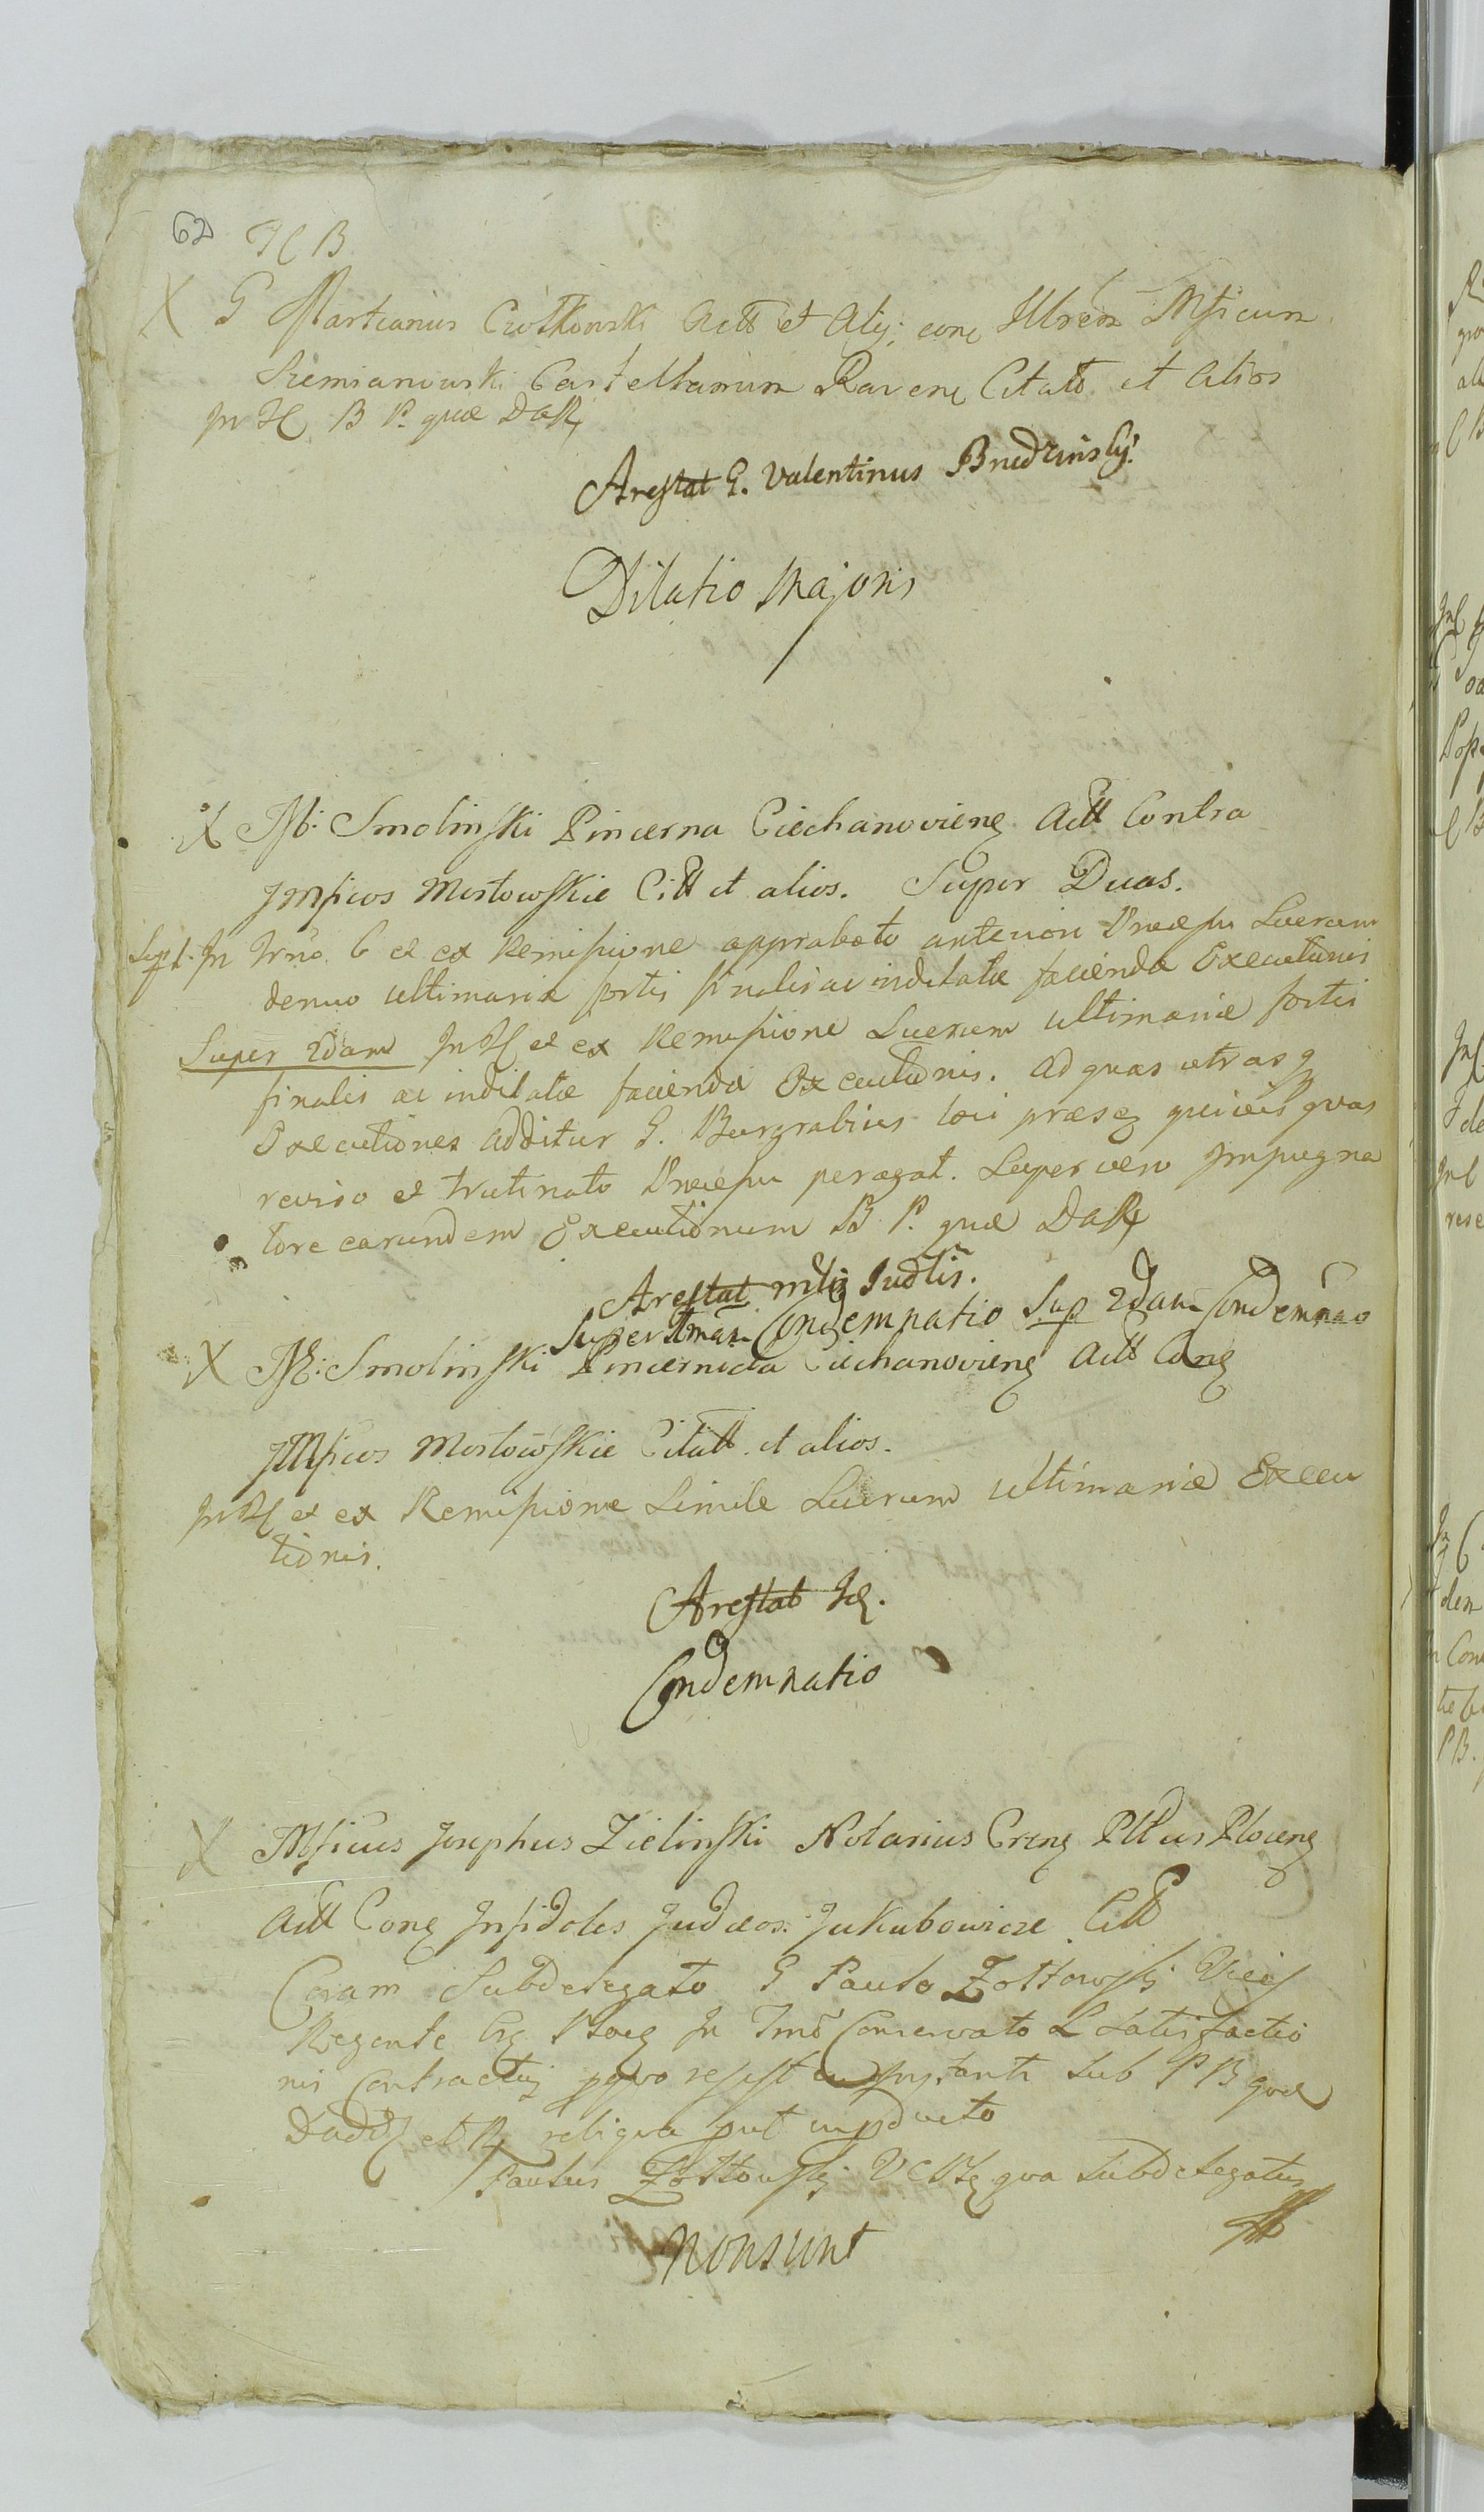 62 H B
X G Martianus Ciołkowski Actt et Alij conę Illrem Mficum
Siemianowski Castellanum Ravenę Citatt et alios
In H B P. quæ DaR
Arestat G. Valentinus Brudzinskij.
Dilatio Majoris
X M: Smolinski Pincerna Ciechanovienę Actt Contra
JMficos Mostowskie Citt et alios. Super Duas.
Sup 1. In Trno. C et ex Remissione approbato anteriori Processu Lucrum
denuo ultimariæ sortis finalis ac indilatæ faciendæ Executionis
Super 2dam In H et ex Remissione Lucrum ultimariæ sortis
finalis ac indilatæ faciendæ Executionis. Ad quas utrasq
Executiones additur G. Burgrabius loci præsę quivis quas
reviso et trutinato Processu peragat. Super vero Impugna
tore earundem Executionum B P. quæ DaR
Arestat mltz Judtis.
Super 1mam Condempnatio Sup 2dam Condemnao
X M: Smolinski Pincernida Ciechanovienę Actt Conę
JMficos Mostowskie Citatt. et alios.
In H et ex Remissione Simile Lucrum ultimariæ Execu
tionis.
Arestat Id.
Condemnatio
X JMficus Josephus Zielinski Notarius Crenę Plltus Plocenę
Actt Conę Infidoles Judæos Jakubowicze Citt
Coram Subdelegato G Paulo Zołtowskj Vice
Regente Crę Plocę In Tmo Conservato L Satisfactio
nis Contractuj pro quo resist instanti sub P B quæ
Dadd et R reliqua put in pducto
Paulus Zołtowskj qua Subdelegatus
Non sunt